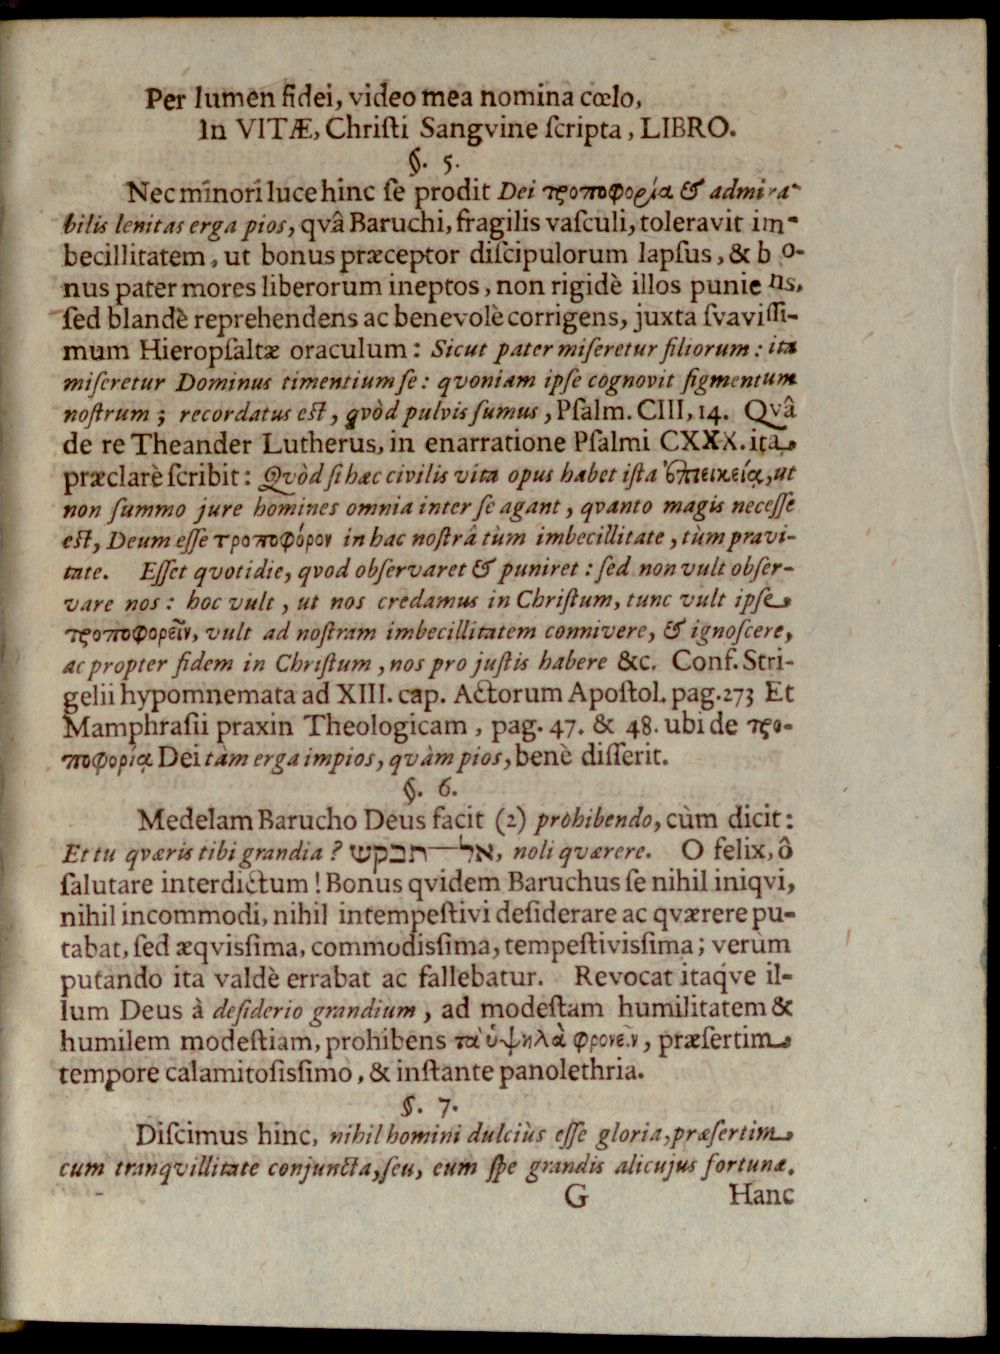 Per lumen fidei, video mea nomina cœlo,
In VITÆ, Chriſti Sangvine ſcripta, LIBRO.
§. 5.
Nec minori luce hinc ſe prodit Dei τροποφορία & admira-
bilis lenitas erga pios, qvâ Baruchi, fragilis vaſculi, toleravit im-
becillitatem, ut bonus præceptor diſcipulorum lapſus, & bo-
nus pater mores liberorum ineptos, non rigidè illos puniens,
ſed blandè reprehendens ac benevolè corrigens, juxta ſvaviſſi-
mum Hieropſaltæ oraculum: Sicut pater miſeretur filiorum: ita
miſeretur Dominus timentium ſe: qvoniam ipſe cognovit figmentum
noſtrum; recordatus eſt, qvòd pulvis ſumus, Pſalm. CIII, 14. Qvâ
de re Theander Lutherus, in enarratione Pſalmi CXXX. ita
præclarè ſcribit: Qvòd ſi hæc civilis vita opus habet iſta ἐπιεικεία, ut
non ſummo jure homines omnia inter ſe agant, qvanto magis neceſſe
eſt, Deum eſſe τροποφόρον in hac noſtrâ tùm imbecillitate, tùm pravi-
tate. Eſſet qvotidie, qvod obſervaret & puniret: ſed non vult obſer-
vare nos: hoc vult, ut nos credamus in Chriſtum, tunc vult ipſe
τροποφορεῖν, vult ad noſtram imbecillitatem connivere, & ignoſcere,
ac propter fidem in Chriſtum, nos pro juſtis habere &c. Conf. Stri-
gelii hypomnemata ad XIII. cap. Actorum Apoſtol. pag. 273 Et
Mamphraſii praxin Theologicam, pag. 47. & 48. ubi de τρο-
ποφορίᾳ Dei tàm erga impios, qvàm pios, benè diſſerit.
§. 6.
Medelam Barucho Deus facit (2) prohibendo, cùm dicit:
Et tu qværis tibi grandia? אל־תבקש, noli qværere. O felix, ô
ſalutare interdictum! Bonus qvidem Baruchus ſe nihil iniqvi,
nihil incommodi, nihil intempeſtivi deſiderare ac qværere pu-
tabat, ſed æqviſſima, commodiſſima, tempeſtiviſſima; verum
putando ita valdè errabat ac fallebatur. Revocat itaqve il-
lum Deus à deſiderio grandium, ad modeſtam humilitatem &
humilem modeſtiam, prohibens τὰ ὑψηλὰ φρονεῖν, præſertim
tempore calamitoſiſſimo, & inſtante panolethria.
§. 7.
Diſcimus hinc, nihil homini dulciùs eſſe gloria, præſertim
cum tranqvillitate conjuncta, ſeu, cum ſpe grandis alicujus fortunæ.
G Hanc